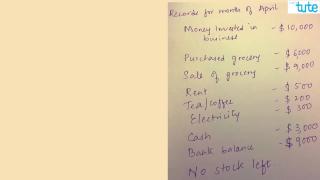 tute
Records for month of April
Money Invested in - $10,000
business
Purchased grocery - $6000
Sale of grocery - $9,000
Rent - $500
Tea/coffee - $200
Electricity - $300
Cash - $3,000
Bank balance - $9000
No stock left